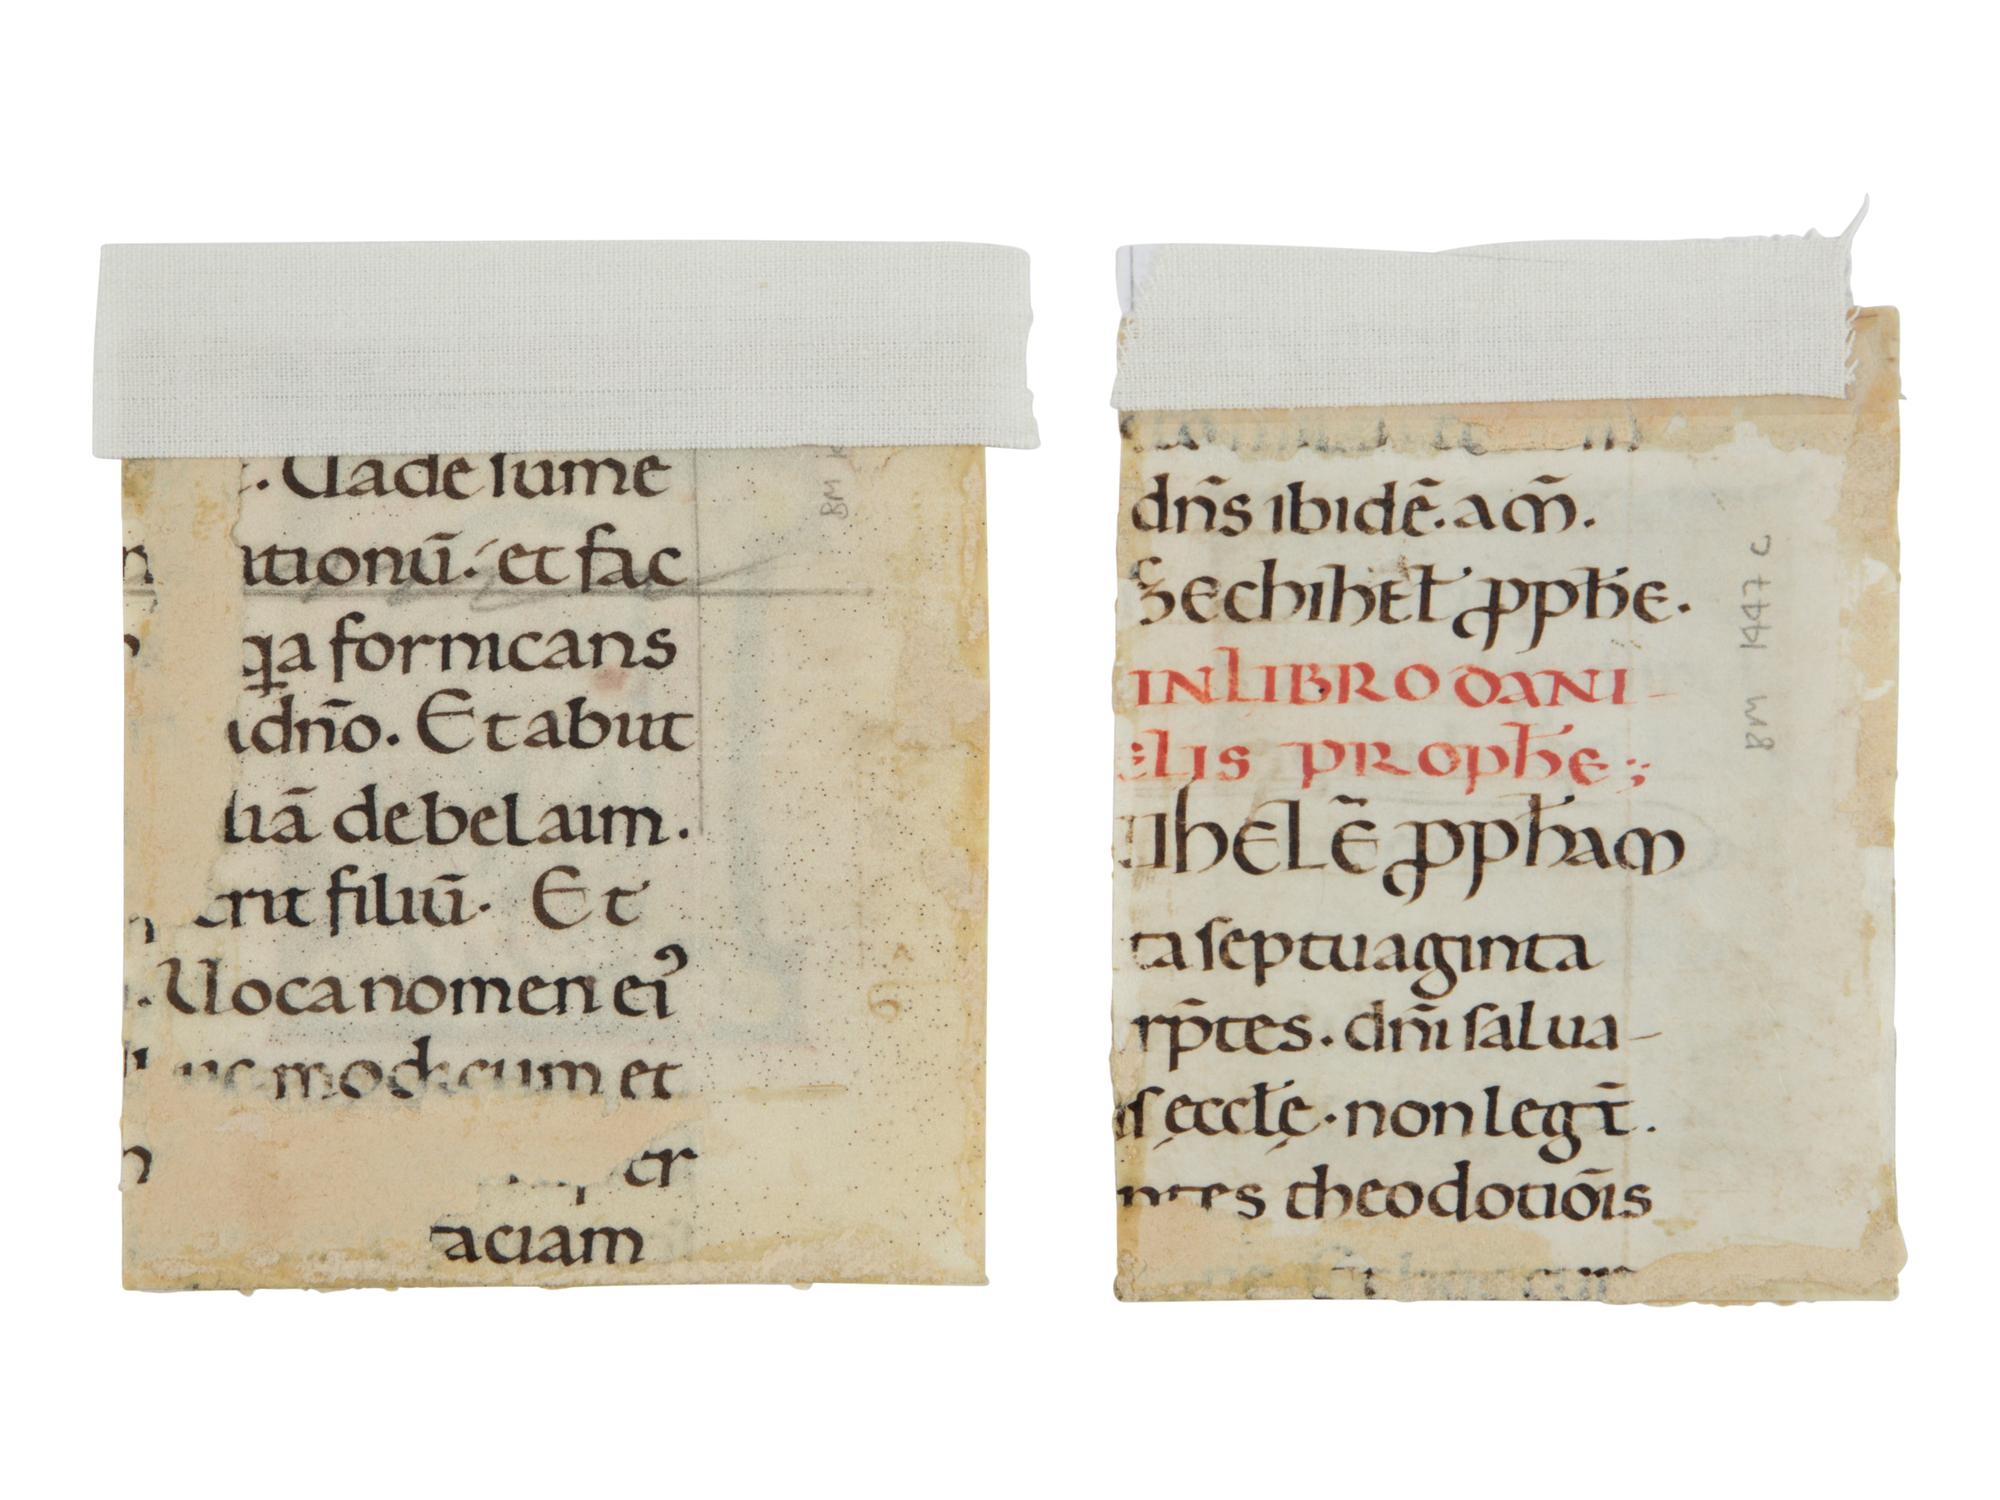 . Uade sume
ationū. et fac
qa fornicans
adn̄o. Et abiit
liā debelaim.
erit filiū. Et
. Uoca nomen ei⁹
modicum et
er
aciam
BM
dn̄s ibidē. am̄.
zechihel ꝓph̄e.
IN LIBRO DANI-
elis proph̄e;
IhELē ꝓph̄am
ta septuaginta
rp̄tes. dn̄i salua-
eccłę. non legī.
ntes theodotiōis
BM 1447 C